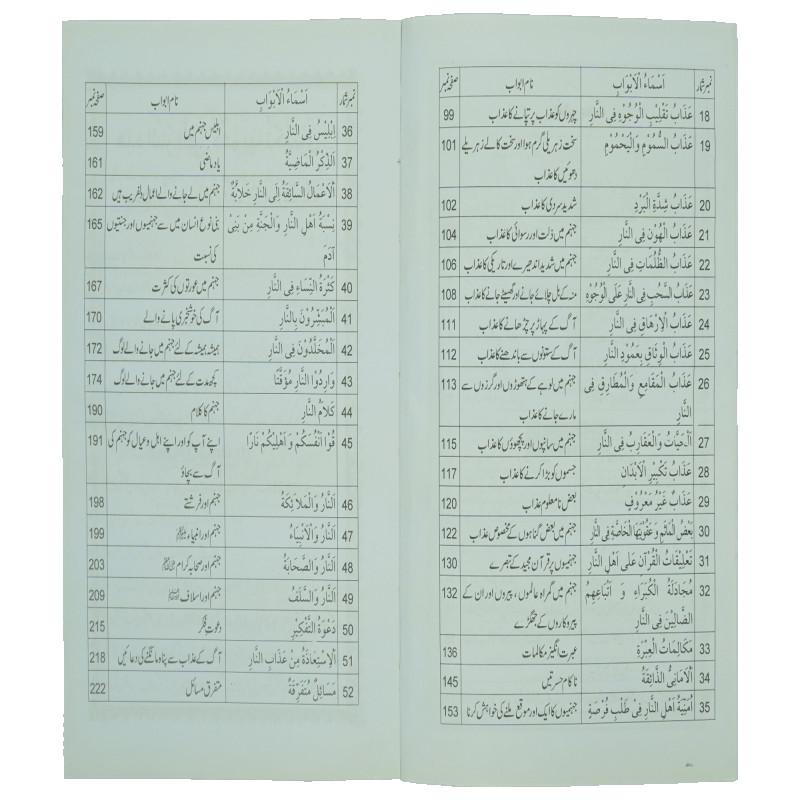 نمبر شمار اَسْمَاءُ الْاَبْوَابِ نام ابواب صفحہ نمبر
18 عَذَابُ تَقْلِیْبِ الْوُجُوْہِ فِی النَّارِ چہروں کو عذاب پر تپانے کا عذاب 99
19 عَذَابُ السَّمُوْمِ وَالْیَحْمُوْمِ سخت زہریلی گرم ہوا اور سخت کالے زہریلے 101
دھوئیں کا عذاب
20 عَذَابُ شِدَّۃِ الْبَرْدِ شدید سردی کا عذاب 102
21 عَذَابُ الْھُوْنِ فِی النَّارِ جہنم میں ذلت اور رسوائی کا عذاب 104
22 عَذَابُ الظُّلُمَاتِ فِی النَّارِ جہنم میں شدید اندھیرے اور تاریکی کا عذاب 106
23 عَذَابُ السَّحْبِ فِی النَّارِ عَلَی الْوُجُوْہِ منہ کے بل چلائے جانے اور گھسیٹے جانے کا عذاب 108
24 عَذَابُ الْاِرْھَاقِ فِی النَّارِ آگ کے پہاڑ پر چڑھانے کا عذاب 111
25 عَذَابُ الْوِثَاقِ بِعَمُوْدِ النَّارِ آگ کے ستونوں سے باندھنے کا عذاب 112
26 عَذَابُ الْمَقَامِعِ وَالْمَطَارِقِ فِی جہنم میں لوہے کے ہتھوڑوں اور گرزوں سے 113
النَّارِ مارے جانے کا عذاب
27 اَلْحَیَّاتُ وَالْعَقَارِبُ فِی النَّارِ جہنم میں سانپوں اور بچھوؤں کا عذاب 115
28 عَذَابُ تَکْبِیْرِ الْاَبْدَانِ جسموں کو بڑا کرنے کا عذاب 117
29 عَذَابٌ غَیْرُ مَعْرُوْفٍ بعض نامعلوم عذاب 120
30 بَعْضُ الْمَاٰثِمِ وَعُقُوْبَتُھَا الْخَاصَّۃُ فِی النَّارِ جہنم میں بعض گناہوں کے مخصوص عذاب 122
31 تَعْلِیْقَاتُ الْقُرْآنِ عَلٰی اَھْلِ النَّارِ جہنمیوں پر قرآن مجید کے تبصرے 130
32 مُجَادَلَۃُ الْکُبَرَاءِ وَ اَتْبَاعِھِمُ جہنم میں گمراہ عالموں ، پیروں اور ان کے 132
الضَّالِّیْنَ فِی النَّارِ پیروکاروں کے جھگڑے
33 مَکَالِمَاتُ الْعِبْرَۃِ عبرت انگیز مکالمات 136
34 اَلْاَمَانِیُّ الذَّائِقَۃُ ناکام حسرتیں 145
35 اُمْنِیَّۃُ اَھْلِ النَّارِ فِیْ طَلَبِ فُرْصَۃٍ جہنمیوں کا ایک اور موقع ملنے کی خواہش کرنا 153
نمبر شمار اَسْمَاءُ الْاَبْوَابِ نام ابواب صفحہ نمبر
36 اِبْلِیْسُ فِی النَّارِ ابلیس جہنم میں 159
37 اَلذِّکْرُ الْمَاضِیَّۃُ یاد ماضی 161
38 اَلْاَعْمَالُ السَّائِقَۃُ اِلَی النَّارِ خَلَّابَۃٌ جہنم میں لے جانے والے اعمال دلفریب ہیں 162
39 نِسْبَۃُ اَھْلِ النَّارِ وَالْجَنَّۃِ مِنْ بَنِیْ بنی نوع انسان میں سے جہنمیوں اور جنتیوں 165
آدَمَ کی نسبت
40 کَثْرَۃُ النِّسَاءِ فِی النَّارِ جہنم میں عورتوں کی کثرت 167
41 اَلْمُبَشَّرُوْنَ بِالنَّارِ آگ کی خوشخبری پانے والے 170
42 اَلْمُخَلَّدُوْنَ فِی النَّارِ ہمیشہ ہمیشہ کے لئے جہنم میں جانے والے لوگ 172
43 وَارِدُوا النَّارِ مُؤَقَّتًا کچھ مدت کے لئے جہنم میں جانے والے لوگ 174
44 کَلَامُ النَّارِ جہنم کا کلام 190
45 قُوْا اَنْفُسَکُمْ وَ اَھْلِیْکُمْ نَارًا اپنے آپ کو اور اپنے اہل و عیال کو جہنم کی 191
آگ سے بچاؤ
46 اَلنَّارُ وَالْمَلَائِکَۃُ جہنم اور فرشتے 198
47 اَلنَّارُ وَالْاَنْبِیَاءُ جہنم اور انبیاء 199
48 اَلنَّارُ وَالصَّحَابَۃُ جہنم اور صحابہ کرام 203
49 اَلنَّارُ وَالسَّلَفُ جہنم اور اسلاف 209
50 دَعْوَۃُ التَّفْکِیْرِ دعوت فکر 215
51 اَلْاِسْتِعَاذَۃُ مِنْ عَذَابِ النَّارِ آگ کے عذاب سے پناہ مانگنے کی دعائیں 218
52 مَسَائِلُ مُتَفَرِّقَۃٌ متفرق مسائل 222